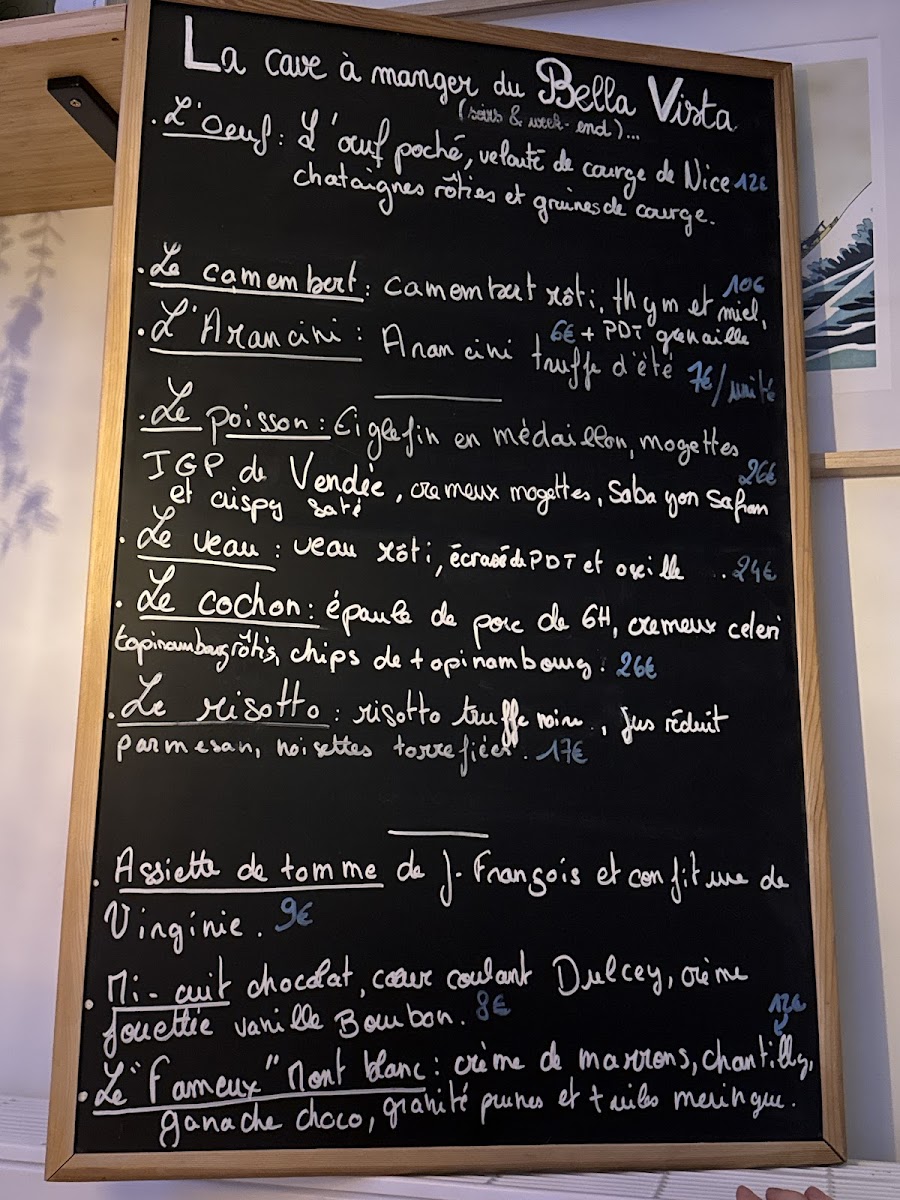 La cave à manger du Bella Vista
(soirs & week-end)...
. L'Oeuf : L'œuf poché, velouté de courge de Nice 12€
chataignes rôties et graines de courge.
. Le camembert : camembert rôti, thym et miel, 10€
6€ + PDT grenaille
. L'Arancini : Arancini truffe d'été 7€/unité
. Le poisson : Eiglefin en médaillon, mogettes
IGP de Vendée, crémeux mogettes, Sabayon Safran 26€
et crispy saté
. Le veau : veau rôti, écrasé de PDT et oseille .. 24€
. Le cochon : épaule de porc de 6H, crémeux celeri
topinambourg rôtis, chips de topinambourg. 26€
. Le risotto : risotto truffe noire, Jus réduit
parmesan, noisettes torrefiées. 17€
. Assiette de tomme de J. François et confiture de
Virginie. 9€
. Mi-cuit chocolat, cœur coulant Dulcey, crème
fouettée vanille Bourbon. 8€
. Le "Fameux" Mont blanc : crème de marrons, chantilly, 12€
ganache choco, granité prunes et tuiles meringue.